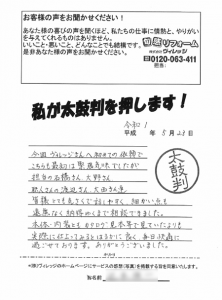 お客様の声をお聞かせください!
あなた様の喜びの声を聞くほど、私たちの仕事に情熱と、やりがい
を与えてくれるものはありません。
いいこと・悪いこと、どんなことでも結構です。
是非あなた様の声をお聞かせください。
和徳リフォーム
株式会社ヴィレッジ
0120-063-411
担当:
私が太鼓判を押します!
令和1
平成 年 5月28日
太鼓判
今回ヴィレッジさんへ初めての依頼で
こちらも最初は緊張気味でしたが
担当の 橋さん 大野さん
職人さんの渡辺さん 太田さん達
皆様とても良くして頂けました。細かい点も
遠慮なく納得のくまで相談できました。
本体・内装ともカタログ、見本等で見ていたよりも
実際に仕上ってみるとはるかに良く、毎日快適に
過ごせております。ありがとうございました。
*(株)ヴィレッジのホームページにサービスの感想(写真)を掲載する旨を同意いたします。
お名前
様